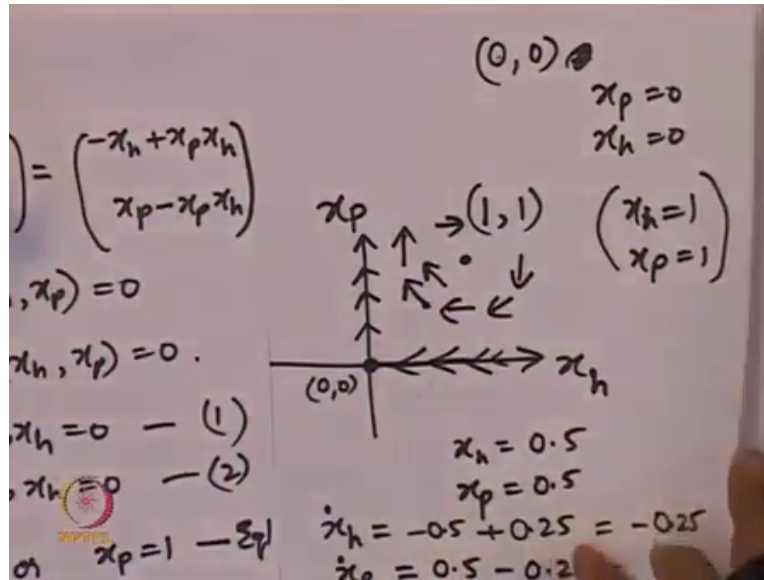 (0,0)
xp = 0
xh = 0
) = (-xh + xp xh
xp - xp xh)
xp
→(1,1)
(xh = 1
xp = 1)
, xp) = 0
xh, xp) = 0.
(0,0)
xh
xh = 0 — (1)
xh = 0.5
, xh = 0 — (2)
xp = 0.5
NPTEL
or xp = 1 — Eq1
ẋh = -0.5 + 0.25 = -0.25
ẋp = 0.5 - 0.2